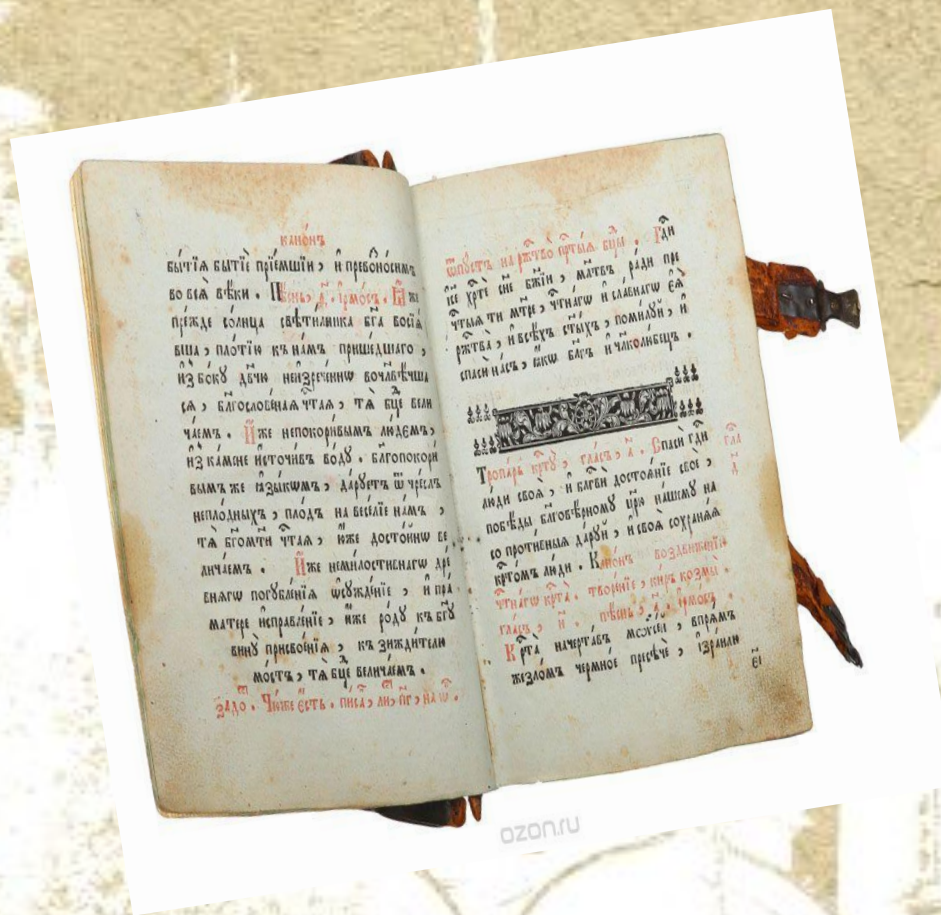 канѡ́нъ
бытїѧ бытїе прїе́мшїи , и҆ превоноси́мъ
во всѧ̀ вѣ́ки . Пѣ́снь , д҃ . і҆рмо́съ . И҆́же
пре́жде со́лнца свѣти́лника бг҃а возсїѧ
вша , пло́тїю къ на́мъ прише́дшаго ,
и҆з̾ бо́кꙋ дв҃чю неизрече́ннѡ вочл҃вѣ́чша
сѧ , блгⷭ҇ове́наѧ чⷭ҇таѧ , тѧ̀ бцⷣе вели
ча́емъ .
И҆́же непокори́вымъ лю́демъ ,
и҆з̾ ка́мене и҆сточи́въ во́дꙋ . блгⷭ҇опокори
вымъ же ꙗ҆зы́кѡмъ , да́рꙋетъ ѿ чре́слъ
непло́дныхъ , пло́дъ на весе́лїе на́мъ ,
тѧ̀ бг҃ома́ти чⷭ҇таѧ , ю҆́же досто́йнѡ ве
лича́емъ . И҆́же неми́лостивнагѡ дре
внѧгѡ погꙋбле́нїѧ ѡ҆сꙋжде́нїе , и҆ пра
ма́тере и҆справле́нїе , и҆́же ро́дꙋ къ бг҃ꙋ
винꙋ̀ присвое́нїѧ , къ зижди́телю
мо́стъ , тѧ̀ бцⷣе велича́емъ .
задо . Чю́же є҆́сть . писа , ли , пг , на ѡ .
ѿпꙋ́стъ на ржⷭ҇тво̀ прⷭ҇тыѧ бцⷣы . Гдⷭ҇и
і҆с҃е хрⷭ҇тѐ сн҃е бж҃їи , мл҃твъ ра́ди пре
чⷭ҇тыѧ ти мт҃ре , чⷭ҇тнагѡ и҆ сла́внагѡ є҆ѧ̀
ржⷭ҇тва̀ , и҆ всѣ́хъ ст҃ы́хъ , поми́лꙋи , и҆
спасѝ на́съ , ꙗ҆́кѡ бл҃гъ и҆ чл҃колю́бецъ .
Тропа́рь крⷭ҇тꙋ̀ , гла́съ , а҃ . Спасѝ гдⷭ҇и
лю́ди своѧ̀ , и҆ блгⷭ҇вѝ достоѧ́нїе своѐ ,
побѣ́ды бл҃гові́рномꙋ цр҃ю̀ на́шемꙋ на
сопроти́вныѧ да́рꙋи , и҆ своѧ̀ сохранѧ́ѧ
крⷭ҇то́мъ лю́ди . Кано́нъ воздви́женїю
чⷭ҇тна́гѡ крⷭ҇та̀ . творе́нїе , ки́ръ козмы̀ .
гла́съ , и҃ . пѣ́снь , а҃ . і҆рмо́съ .
Крⷭ҇та̀ начерта́въ моѷсе́й , впрѧ́мъ
жезло́мъ чермно́е пресѣ́че , і҆зраи́лю
ozon.ru